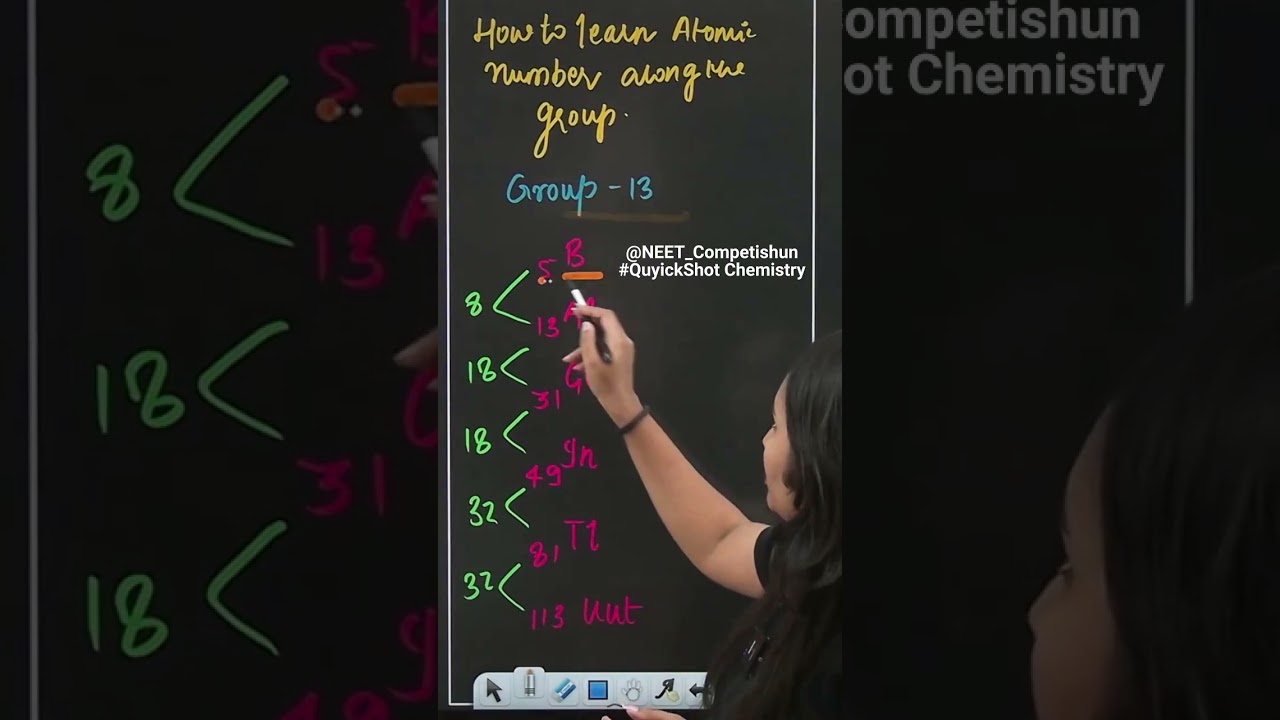 How to learn Atomic
number along the
group.
Group - 13
@NEET_Competishun
#QuyickShot Chemistry
5 B
8
13 Al
18
31 G
18
49 In
32
81 Tl
32
113 Uut
ompetishun
ot Chemistry
5
8
13
18
31
18